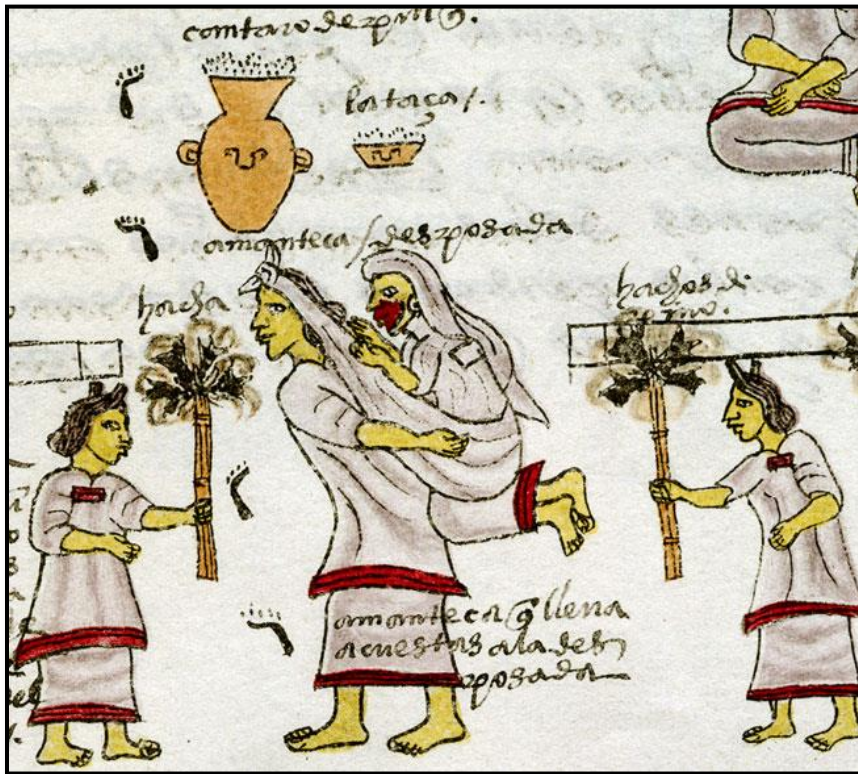 cantaro de pulq̃.
la taça/.
amanteca / desposada
hacha
hachos de
pino.
amanteca q̃ lleva
a cuestas a la des
posada